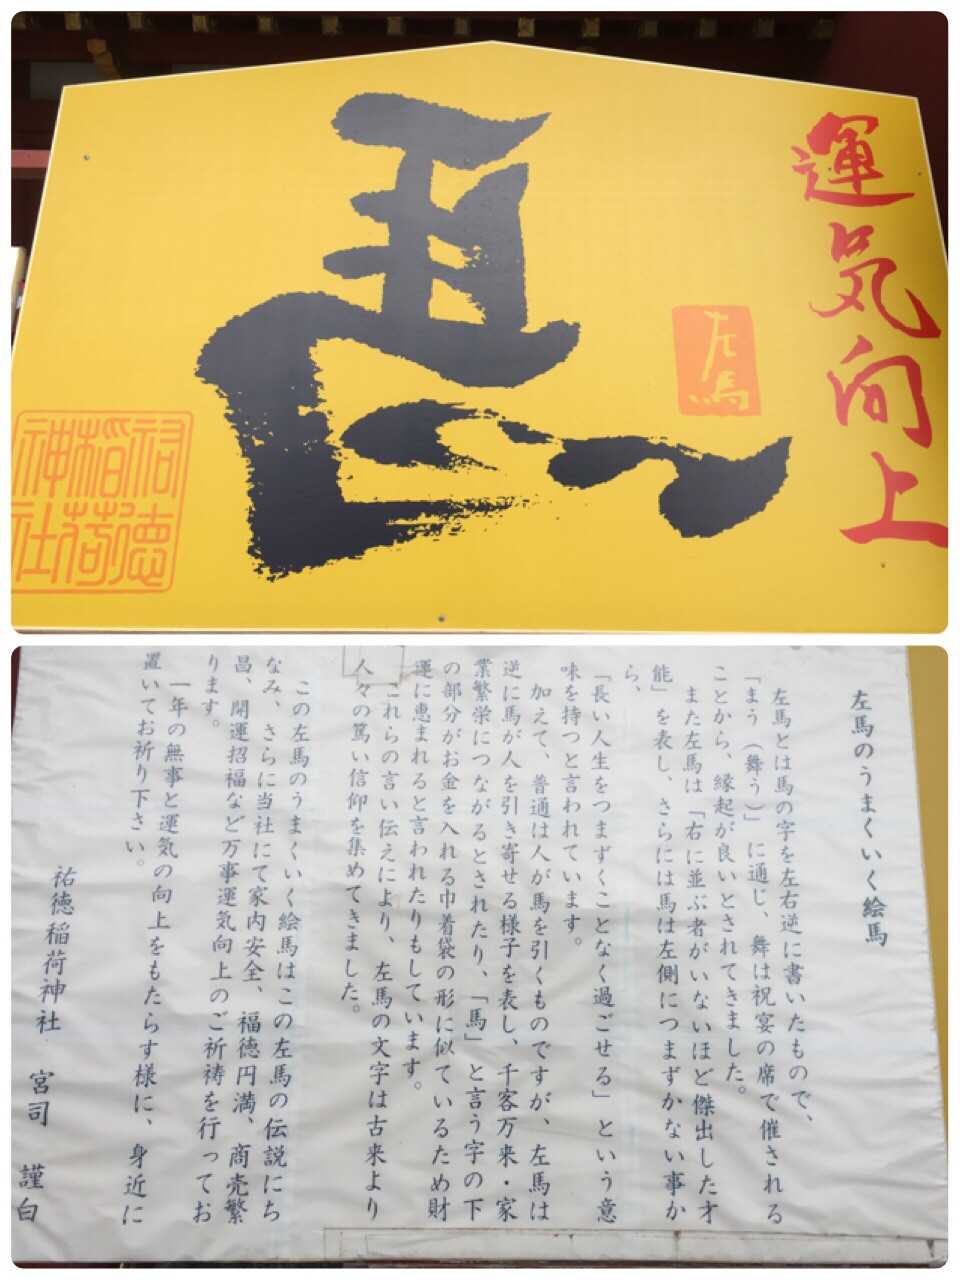 運気向上
左馬
馬
祐徳
稲荷
神社
左馬のうまくいく絵馬
左馬とは馬の字を左右逆に書いたもので、
「まう（舞う）」に通じ、舞は祝宴の席で催される
ことから、縁起が良いとされてきました。
また左馬は「右に並ぶ者がいないほど傑出した才
能」を表し、さらには馬は左側につまずかない事か
ら、
「長い人生をつまずくことなく過ごせる」という意
味を持つと言われています。
加えて、普通は人が馬を引くものですが、左馬は
逆に馬が人を引き寄せる様子を表し、千客万来・家
業繁栄につながるとされたり、「馬」と言う字の下
の部分がお金を入れる巾着袋の形に似ているため財
運に恵まれると言われたりもしています。
これらの言い伝えにより、左馬の文字は古来より
人々の篤い信仰を集めてきました。
この左馬のうまくいく絵馬はこの左馬の伝説にち
なみ、さらに当社にて家内安全、福徳円満、商売繁
昌、開運招福など万事運気向上のご祈祷を行ってお
ります。
一年の無事と運気の向上をもたらす様に、身近に
置いてお祈り下さい。
祐徳稲荷神社　宮司　謹白